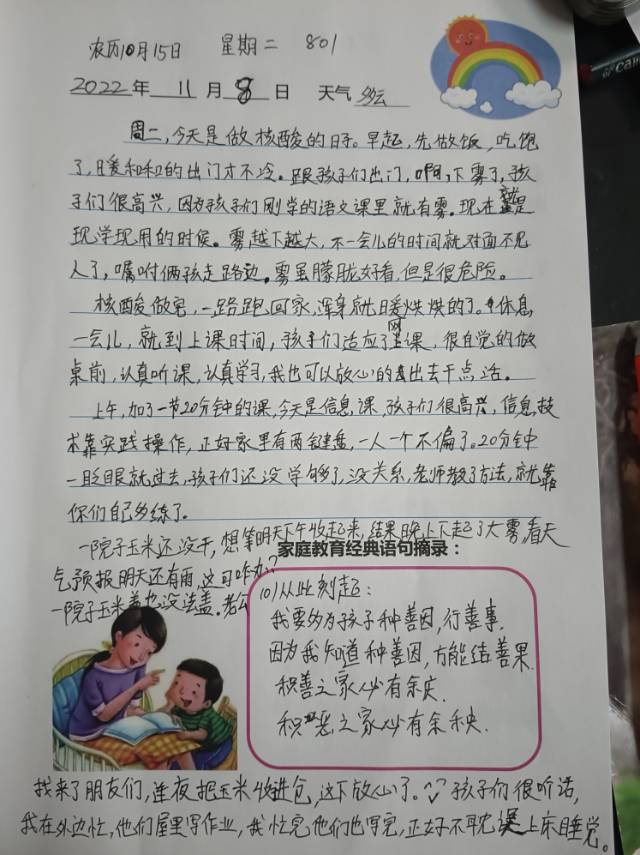 农历10月15日 星期二 801
2022年 11月 8日 天气 多云
周二,今天是做核酸的日子。早起,先做饭,吃饱
了,暖和和的出门才不冷。跟孩子们出门,啊,下雾了,孩
子们很高兴,因为孩子们刚学的语文课里就有雾。现在就是
现学现用的时候。雾越下越大,不一会儿的时间就对面不见
人了,嘱咐俩孩走路边。雾虽朦胧好看,但是很危险。
核酸做完,一路跑回家,浑身就暖烘烘的了。休息
一会儿,就到上课时间,孩子们适应了网课,很自觉的做
桌前,认真听课,认真学习,我也可以放心的出去干点活。
上午,加了一节20分钟的课,今天是信息课,孩子们很高兴,信息技
术靠实践操作,正好家里有两键盘,一人一个不偏了。20分钟
一眨眼就过去,孩子们还没学够了,没关系,老师教了方法,就靠
你们自己多练了。
一院子玉米还没干,想等明天下午收起来,结果晚上下起了大雾,看天
气预报明天还有雨,这可咋办?
一院子玉米盖也没法盖。老公
家庭教育经典语句摘录:
(10)从此刻起:
我要多为孩子种善因,行善事.
因为我知道种善因,方能结善果.
积善之家必有余庆.
积恶之家必有余秧.
找来了朋友们,连夜把玉米收进仓,这下放心了。孩子们很听话,
我在外边忙,他们屋里写作业,我忙完他们也写完,正好不耽误上床睡觉。